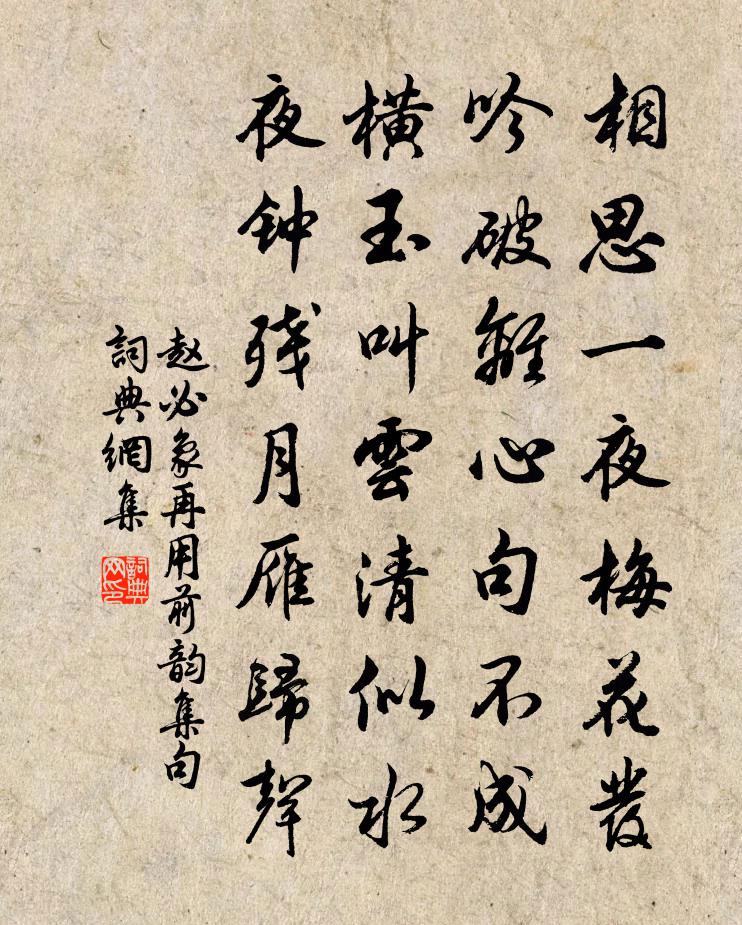 相思一夜梅花發
吟破離心句不成
横玉叫雲清似水
夜钟残月雁歸聲
赵必象再用前韵集句
詞典網集
詞典
网印